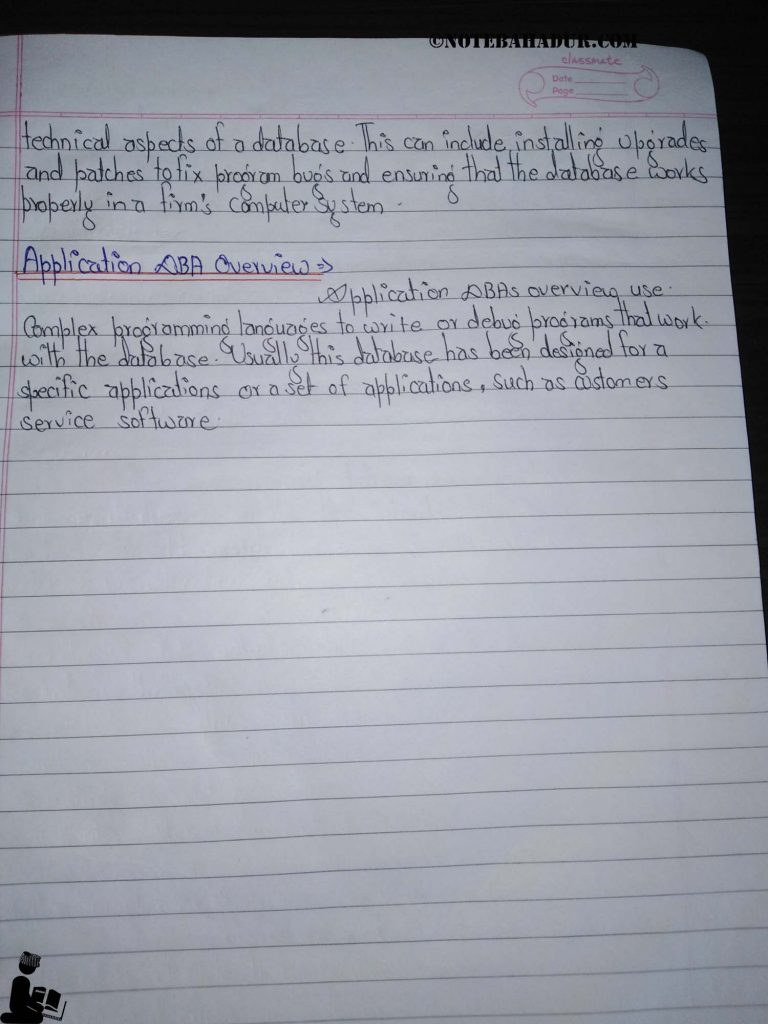 ©NOTEBAHADUR.COM
classmate
Date
Page
technical aspects of a database. This can include installing upgrades
and patches to fix program bugs and ensuring that the database works
properly in a firm's computer system.
Application DBA Overview ⇒
Application DBAs overview use.
Complex programming languages to write or debug programs that work.
with the database. Usually this database has been designed for a
specific applications or a set of applications, such as customers
service software.